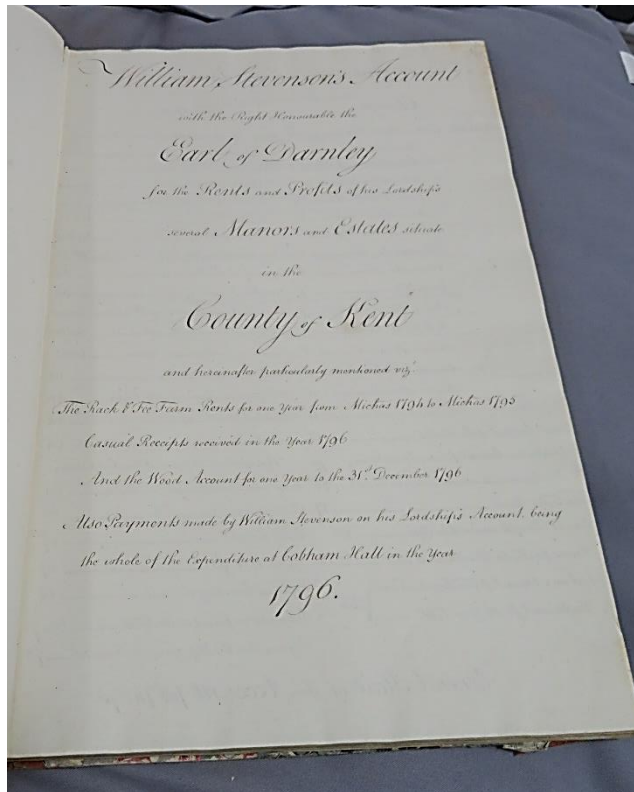 William Stevenson's Account
with the Right Honourable the
Earl of Darnley
for the Rents and Profits of his Lordship's
several Manors and Estates situate
in the
County of Kent
and hereinafter particularly mentioned vizt
The Rack & Fee Farm Rents for one Year from Michas 1794 to Michas 1795
Casual Receipts received in the Year 1796
And the Wood Account for one Year to the 31st December 1796
Also Payments made by William Stevenson on his Lordship's Account, being
the whole of the Expenditure at Cobham Hall in the Year
1796.